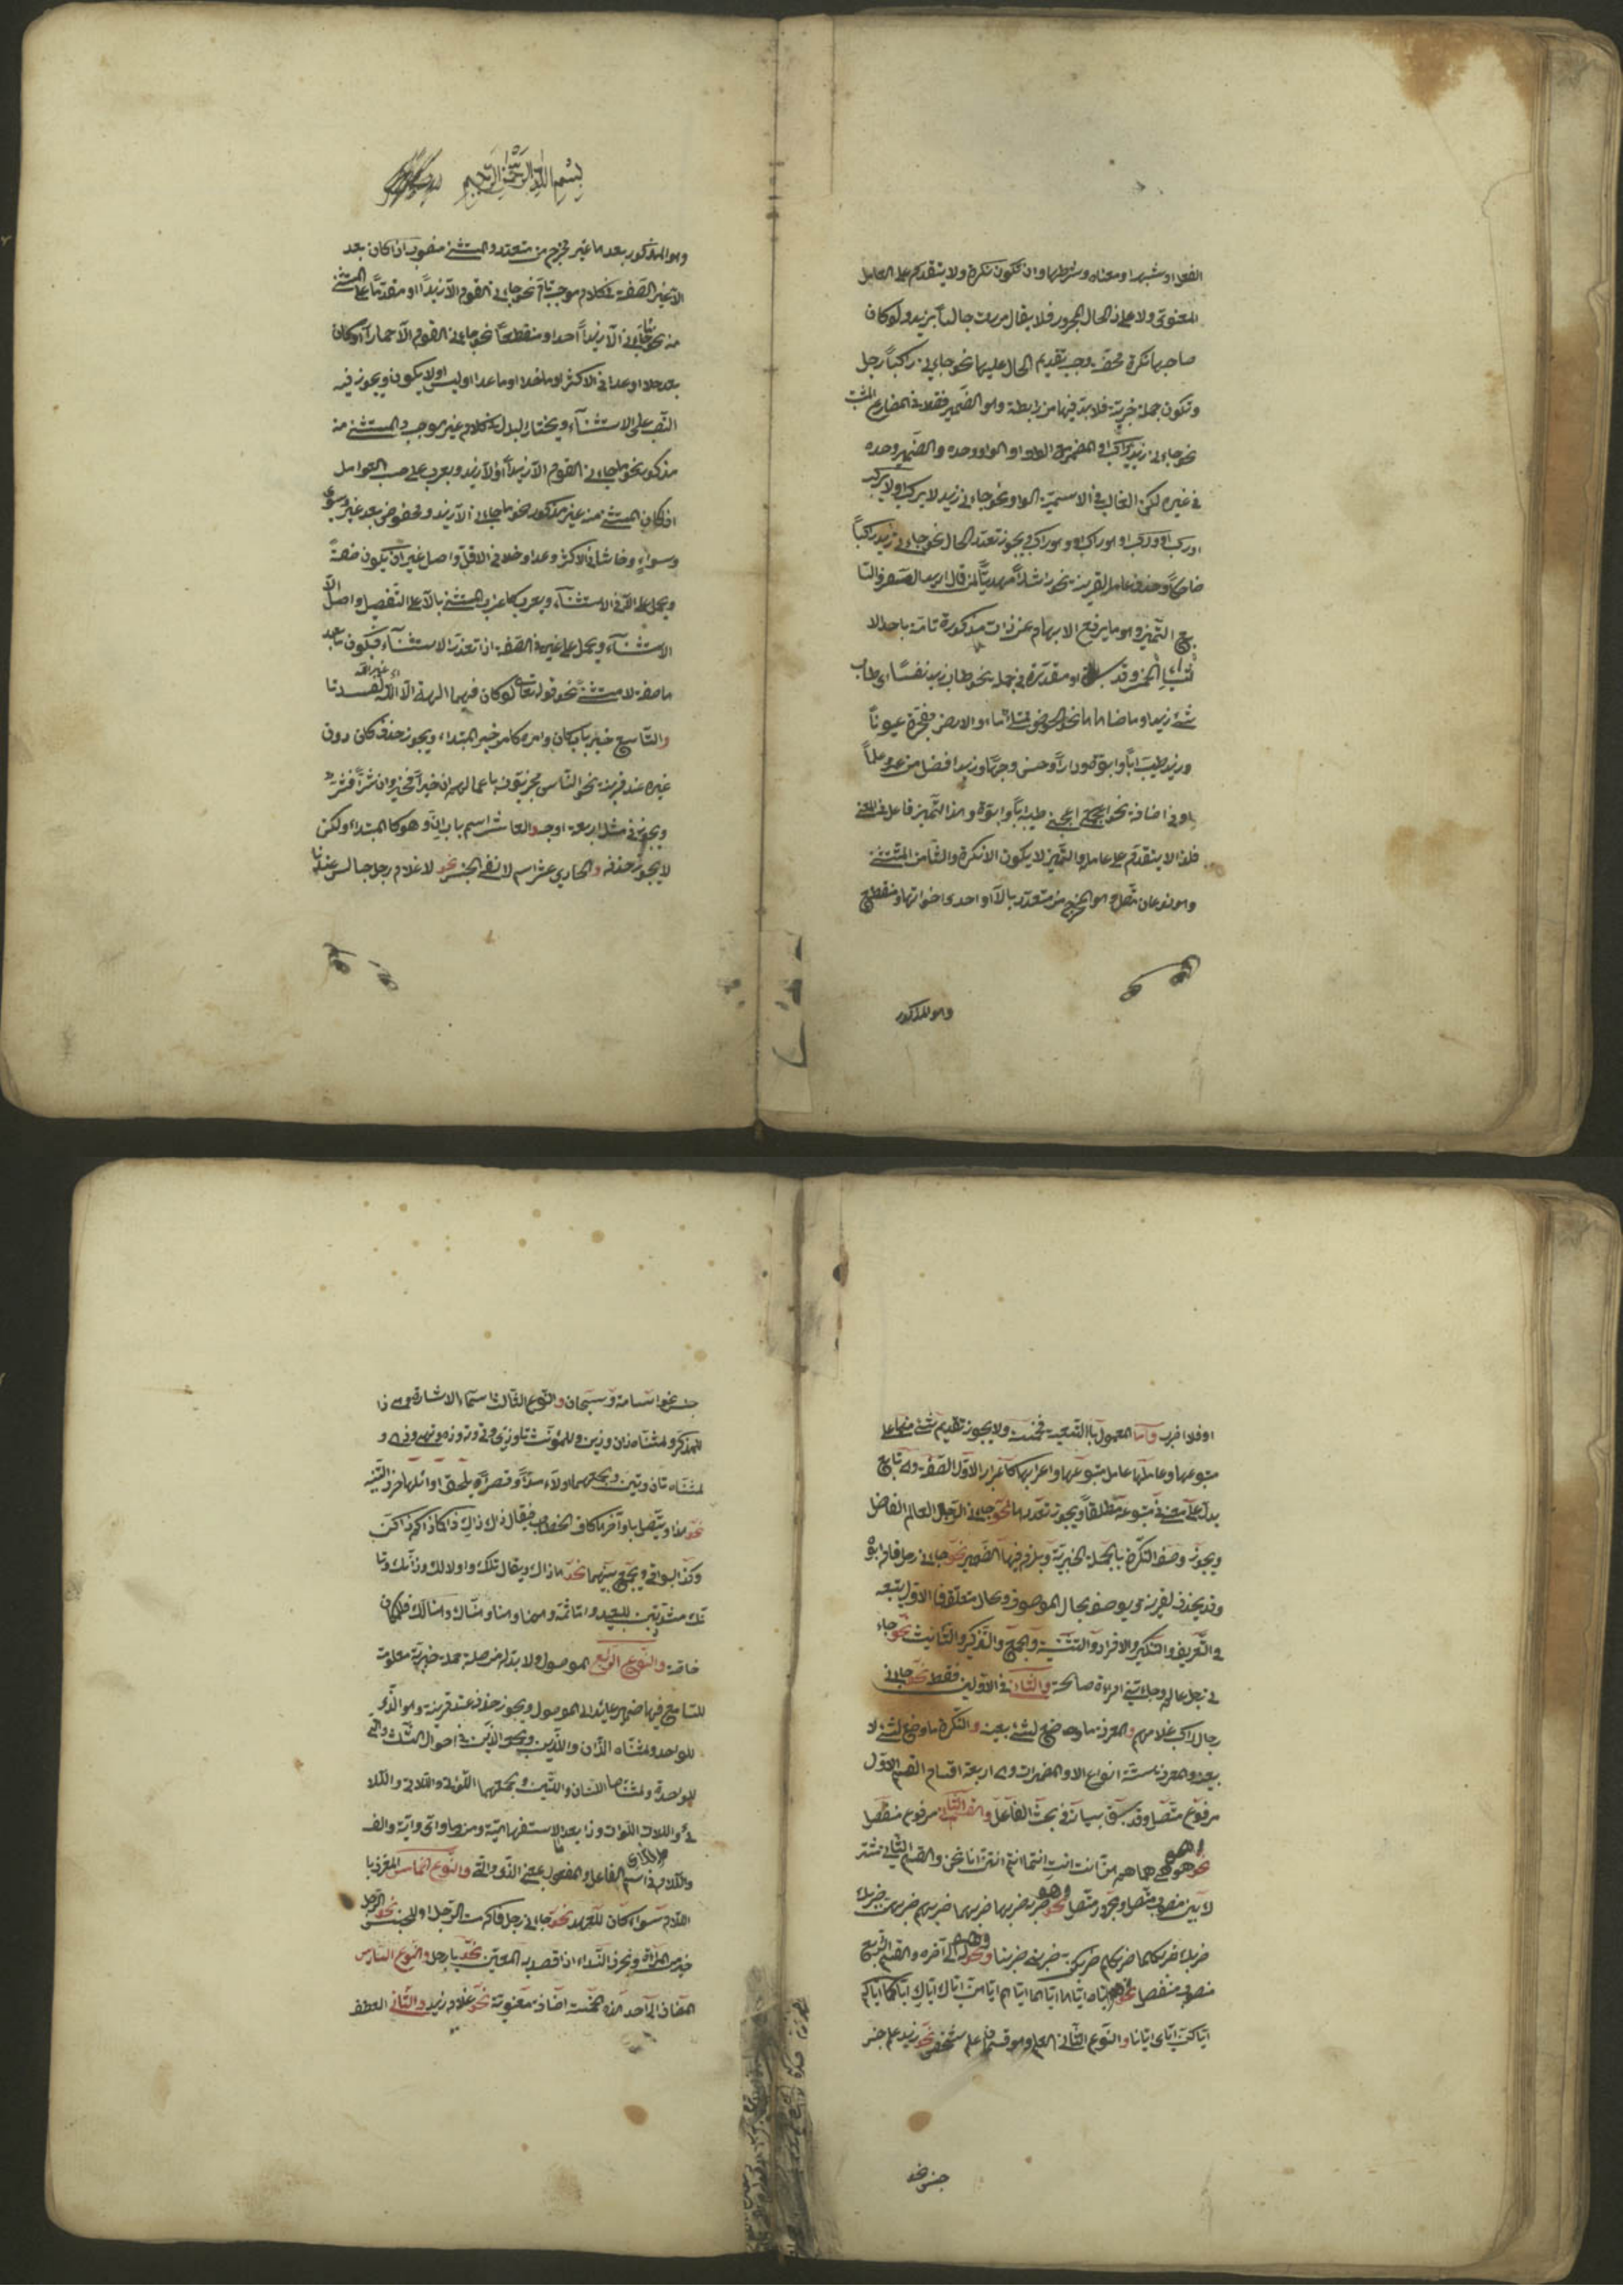 الفعل او شبهه او معناه وشرطها وان تكون نكرة ولا يتقدم على العامل
المعنوى ولا على ذى الحال المجرور فلا يقال مررت جالسا بزيد ولو كان
صاحبها نكرة محضة وجب تقديم الحال عليها نحو جاءنى راكبا رجل
وتكون جملة خبرية فلابد فيها من رابطة وهو الضمير فقط فى المضارع المثبت
نحو جاءنى زيد يركب او الضمير مع الواو او الواو وحده والضمير وحده
فى غيره لكن الغالب فى الاسمية الواو نحو جاءنى زيد لا يركب ولا يركب
او ركب او وركب او هو راكب او وهو راكب ويجوز تعدد الحال نحو جاءنى زيد راكبا
ضاحكا وحذف عامله لقرينة نحو راشدا مهديا لمن قال اريد السفر والسا
بع التمييز وهو ما يرفع الابهام عن ذات مذكورة تامة باحد الا
شياء الخمسة وقد او مقدرة فى جملة نحو طاب زيد نفسا اى طاب
شئ زيد او ما ضاهاها نحو الحوض ممتلئ ماء والارض مفجرة عيونا
وزيد طيب ابا وابوة ودارا وحسن وجها وزيد افضل من عمرو علما
او فى اضافة نحو اعجبنى طيبه ابا وابوة وهذا التمييز فاعل فى المعنى
فلهذا لا يتقدم على عامله والتمييز لا يكون الا نكرة والثامن المستثنى
وهو نوعان متصل وهو المخرج من متعدد بالا او احدى اخواتها ومنقطع
وهو المذكور
بسم الله الرحمن الرحيم
وهو المذكور بعدها غير مخرج من متعدد والمستثنى منصوب اذا كان بعد
الا غير الصفة فى كلام موجب تام نحو جاءنى القوم الا زيدا او مقدما على المستثنى
منه نحو ما جاءنى الا زيدا احد او منقطعا نحو جاءنى القوم الا حمارا او كان
بعد خلا او عدا فى الاكثر او ما خلا او ما عدا او ليس او لا يكون ويجوز فيه
النصب على الاستثناء ويختار البدل فى كلام غير موجب والمستثنى منه
مذكور نحو ما جاءنى القوم الا زيدا او الا زيد ويعرب على حسب العوامل
اذا كان المستثنى منه غير مذكور نحو ما جاءنى الا زيد ومخفوض بعد غير وسوى
وسواء وحاشا فى الاكثر وعدا وخلا فى الاقل واصل غير ان يكون صفة
ويحمل على الا فى الاستثناء ويعرب كاعراب المستثنى بالا على التفصيل واصل الا
الاستثناء ويحمل على غير فى الصفة اذا تعذر الاستثناء فيكون ما بعد
ها صفة لا مستثنى نحو قوله تعالى لو كان فيهما الهة الا الله اى غير الله لفسدتا
والتاسع خبر باب كان وامره كامر خبر المبتداء ويجوز حذف كان دون
غيره عند قرينة نحو الناس مجزيون باعمالهم ان خيرا فخير وان شرا فشر
ويجوز فى مثله اربعة اوجه والعاشر اسم باب ان وهو كالمبتداء ولكن
لا يجوز حذفه والحادى عشر اسم لا لنفى الجنس نحو لا غلام رجل جالس عندنا
او فلا اضرب واما المعمول بالتبعية فخمسة ولا يجوز تقديم شئ منها على
متبوعها وعاملها عامل متبوعها واعرابها كاعرابه الاول الصفة وهى تابع
يدل على معنى فى متبوعه مطلقا ويجوز تعددها نحو جاءنى الرجل العالم الفاضل
ويجوز وصف النكرة بالجملة الخبرية ويلزم فيها الضمير نحو جاءنى رجل قام ابوه
وقد يحذف لقرينة ويوصف بحال الموصوف وبحال متعلقه فالاول يتبعه
فى التعريف والتنكير والافراد والتثنية والجمع والتذكير والتانيث نحو جاء
نى رجل عالم وجاءتنى امرءة صالحة والثانى فى الاولين فقط نحو جاءنى
رجال راكب غلامهم والمعرفة ما وضع لشئ بعينه والنكرة ما وضع لشئ لا
بعينه والمعرفة ستة انواع الاول المضمرات وهى اربعة اقسام القسم الاول
مرفوع متصل وقد سبق بيانه فى بحث الفاعل والقسم الثانى مرفوع منفصل
نحو هو هى هما هم هن انت انت انتما انتم انتن انا نحن والقسم الثالث مشتر
ك بين منصوب متصل ومجرور متصل نحو ضربه ضربها ضربهما ضربهم ضربهن ضربك
ضربك ضربكما ضربكم ضربكن ضربنى ضربنا ونحو له الى آخره والقسم الرابع
منصوب منفصل نحو اياه اياها اياهما اياهم اياهن اياك اياك اياكما اياكم
اياكن اياى ايانا والنوع الثانى العلم وهو قسمان علم شخص نحو زيد وعلم جنس
جنس نحو
جنس نحو اسامة وسبحان والنوع الثالث اسماء الاشارة وهى ذا
للمذكر ولمثناه ذان وذين وللمؤنث تا وذى وتى وته وذه وتهى وذهى و
لمثناه تان وتين ولجمعهما اولاء مدا وقصرا ويلحق اوائلها حرف التنبيه
نحو هذا ويتصل باواخرها كاف الخطاب فيقال ذاك ذاك ذاكما ذاكم ذاكن
وكذا البواقى ويجمع بينهما نحو هاذاك ويقال تلك واولالك وذانك وتا
نك مشددتين للبعيد واما ثمة وهنا وههنا وهناك وهنالك فللمكان
خاصة والنوع الرابع الموصول ولابد له من صلة جملة خبرية معلومة
للسامع فيها ضمير عائد الى الموصول ويجوز حذفه عند قرينة وهو الذى
للواحد ولمثناه اللذان واللذين ولجمعه الذين فى احوال الثلث والتى
للواحدة ولمثناها اللتان واللتين ولجمعهما اللاتى واللائى واللا
ئى واللات اللوات وذا بعد ما الاستفهامية ومن وما واى واية والالف
واللام فى اسم الفاعل والمفعول بمعنى الذى والتى والنوع الخامس المعرف با
اللام سواء كان للعهد نحو جاءنى رجل فاكرمت الرجل او للجنس نحو الرجل
خير من المراة وبحرف النداء اذا قصد به المعين نحو يا رجل والنوع السادس
المضاف الى احد هذه الخمسة اضافة معنوية نحو غلام زيد والثانى العطف